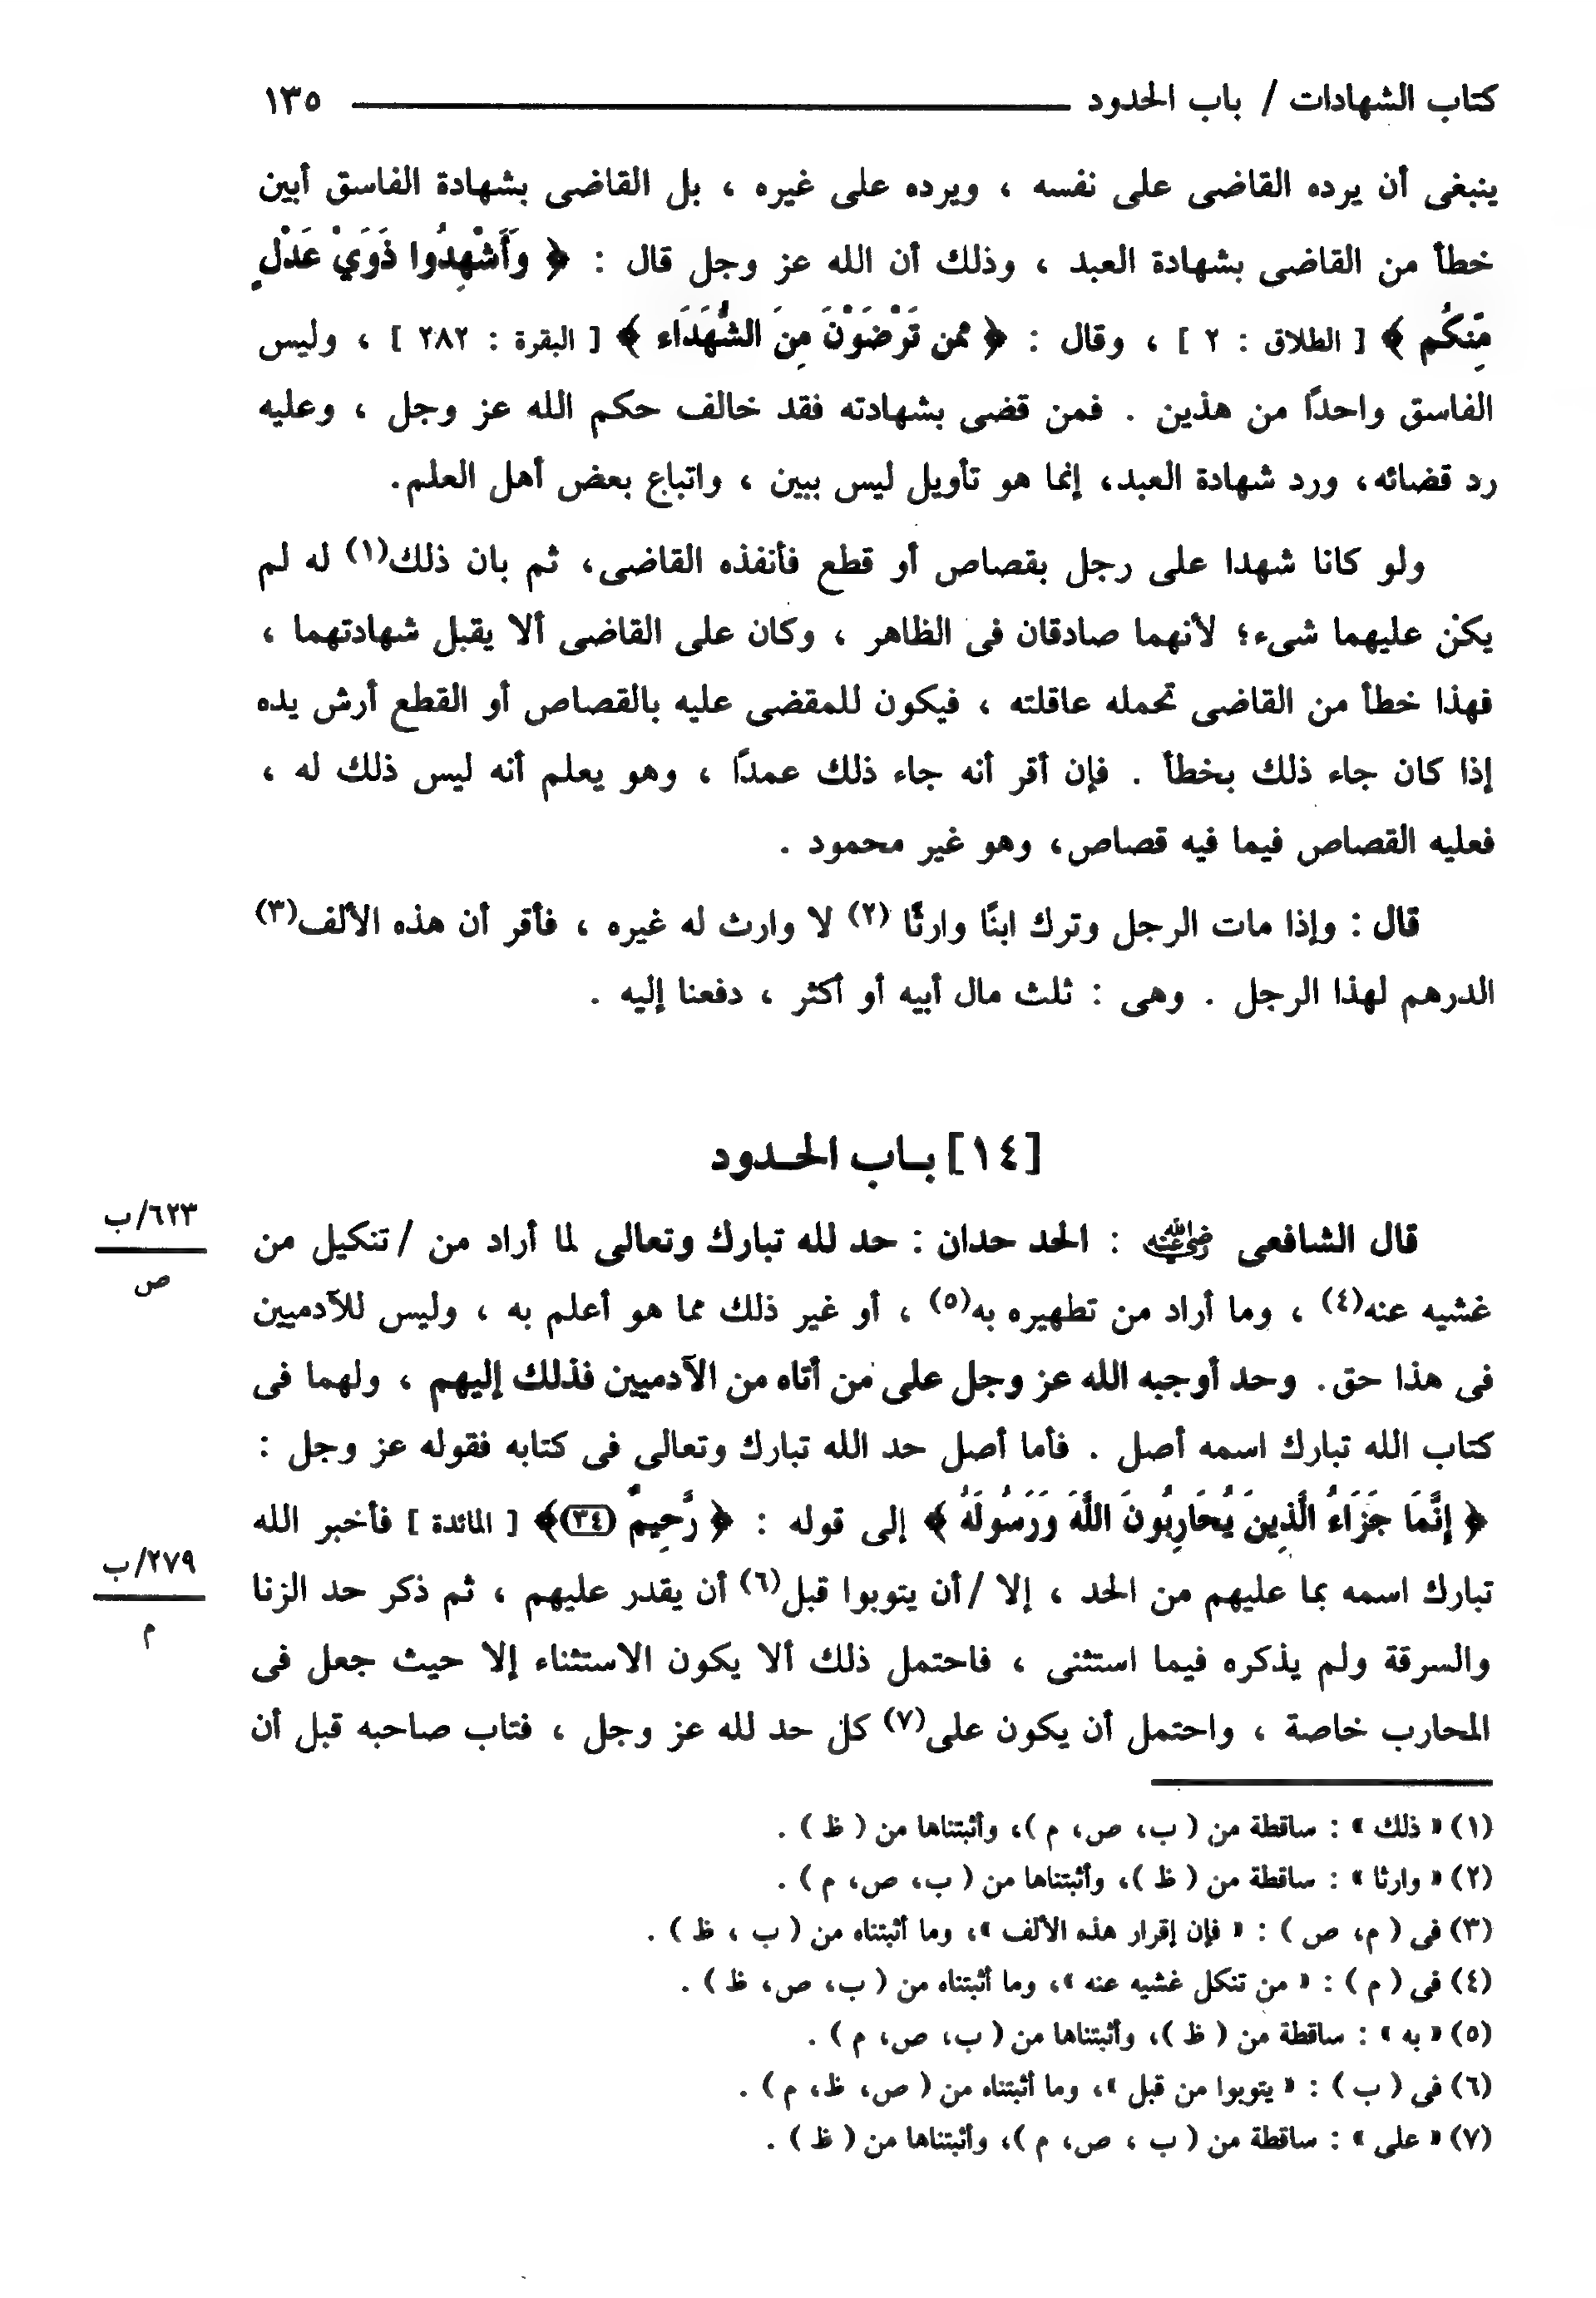 كتاب الشهادات / باب الحدود ١٣٥
ينبغى أن يرده القاضى على نفسه ، ويرده على غيره ، بل القاضى بشهادة الفاسق أبين
خطأ من القاضى بشهادة العبد ، وذلك أن الله عز وجل قال : ﴿ وَأَشْهِدُوا ذَوَيْ عَدْلٍ
مِّنكُم ﴾ [ الطلاق : ٢ ] ، وقال : ﴿ ممن تَرْضَوْنَ مِنَ الشُّهَدَاء ﴾ [ البقرة : ٢٨٢ ] ، وليس
الفاسق واحدًا من هذين . فمن قضى بشهادته فقد خالف حكم الله عز وجل ، وعليه
رد قضائه، ورد شهادة العبد، إنما هو تأويل ليس ببين ، واتباع بعض أهل العلم.
ولو كانا شهدا على رجل بقصاص أو قطع فأنفذه القاضى، ثم بان ذلك(١) له لم
يكن عليهما شىء؛ لأنهما صادقان فى الظاهر ، وكان على القاضى ألا يقبل شهادتهما ،
فهذا خطأ من القاضى تحمله عاقلته ، فيكون للمقضى عليه بالقصاص أو القطع أرش يده
إذا كان جاء ذلك بخطأ . فإن أقر أنه جاء ذلك عمدًا ، وهو يعلم أنه ليس ذلك له ،
فعليه القصاص فيما فيه قصاص، وهو غير محمود .
قال : وإذا مات الرجل وترك ابنًا وارثًا (٢) لا وارث له غيره ، فأقر أن هذه الألف(٣)
الدرهم لهذا الرجل . وهى : ثلث مال أبيه أو أكثر ، دفعنا إليه .
[١٤] بـاب الحـدود
قال الشافعى رضي الله عنه : الحد حدان : حد لله تبارك وتعالى لما أراد من / تنكيل من
٦٢٣/ب
ص
غشيه عنه(٤) ، وما أراد من تطهيره به(٥) ، أو غير ذلك مما هو أعلم به ، وليس للآدميين
فى هذا حق. وحد أوجبه الله عز وجل على من أتاه من الآدميين فذلك إليهم ، ولهما فى
كتاب الله تبارك اسمه أصل . فأما أصل حد الله تبارك وتعالى فى كتابه فقوله عز وجل :
﴿ إِنَّمَا جَزَاءُ الَّذِينَ يُحَارِبُونَ اللَّهَ وَرَسُولَهُ ﴾ إلى قوله : ﴿ رَّحِيمٌ (٣٤)﴾ [ المائدة ] فأخبر الله
تبارك اسمه بما عليهم من الحد ، إلا / أن يتوبوا قبل(٦) أن يقدر عليهم ، ثم ذكر حد الزنا
٢٧٩/ب
م
والسرقة ولم يذكره فيما استثنى ، فاحتمل ذلك ألا يكون الاستثناء إلا حيث جعل فى
المحارب خاصة ، واحتمل أن يكون على(٧) كل حد لله عز وجل ، فتاب صاحبه قبل أن
(١) « ذلك » : ساقطة من ( ب، ص، م )، وأثبتناها من ( ظ ) .
(٢) « وارثا » : ساقطة من ( ظ )، وأثبتناها من ( ب، ص، م ) .
(٣) فى ( م، ص ) : « فإن إقرار هذه الألف »، وما أثبتناه من ( ب ، ظ ) .
(٤) فى ( م ) : « من تنكل غشيه عنه »، وما أثبتناه من ( ب، ص، ظ ) .
(٥) « به » : ساقطة من ( ظ )، وأثبتناها من ( ب، ص، م ) .
(٦) فى ( ب ) : « يتوبوا من قبل »، وما أثبتناه من ( ص، ظ، م ) .
(٧) « على » : ساقطة من ( ب ، ص، م )، وأثبتناها من ( ظ ) .